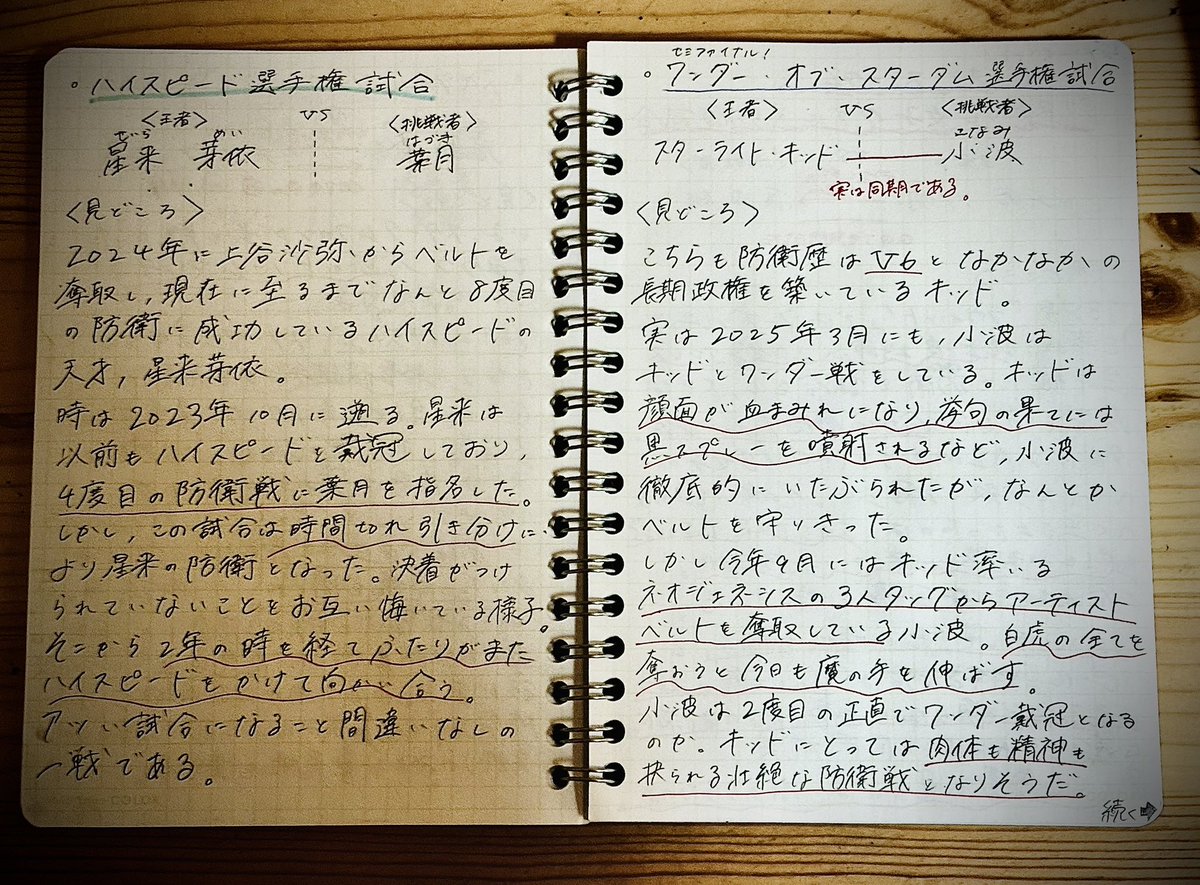 ・ハイスピード選手権試合
〈王者〉 VS 〈挑戦者〉
せいら めい はづき
星来 芽依 葉月
〈見どころ〉
2024年に上谷沙弥からベルトを
奪取し、現在に至るまでなんと8度目
の防衛に成功しているハイスピードの
天才、星来芽依。
時は2023年10月に遡る。星来は
以前もハイスピードを戴冠しており、
4度目の防衛戦に葉月を指名した。
しかし、この試合は時間切れ引き分けに
より星来の防衛となった。決着がつけ
られていないことをお互い悔いている様子。
そこから2年の時を経てふたりがまた
ハイスピードをかけて向かい合う。
アツい試合になること間違いなしの
一戦である。
セミファイナル!
・ワンダー・オブ・スターダム選手権試合
〈王者〉 VS 〈挑戦者〉
こなみ
スターライト・キッド 小波
実は同期である。
〈見どころ〉
こちらも防衛歴はV6となかなかの
長期政権を築いているキッド。
実は2025年3月にも、小波は
キッドとワンダー戦をしている。キッドは
顔面が血まみれになり、挙句の果てには
黒スプレーを噴射されるなど、小波に
徹底的にいたぶられたが、なんとか
ベルトを守りきった。
しかし今年9月にはキッド率いる
ネオジェネシスの3人タッグからアーティスト
ベルトを奪取している小波。白虎の全てを
奪おうと今日も魔の手を伸ばす。
小波は2度目の正直でワンダー戴冠となる
のか。キッドにとっては肉体も精神も
抉られる壮絶な防衛戦となりそうだ。
続く➡